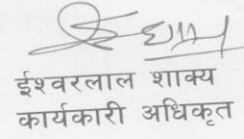 ईश्वरलाल शाक्य
कार्यकारी अधिकृत